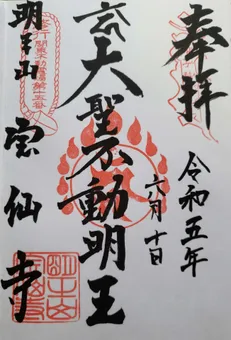 奉拝
令和五年
六月十日
大聖不動明王
明王山
宝仙寺